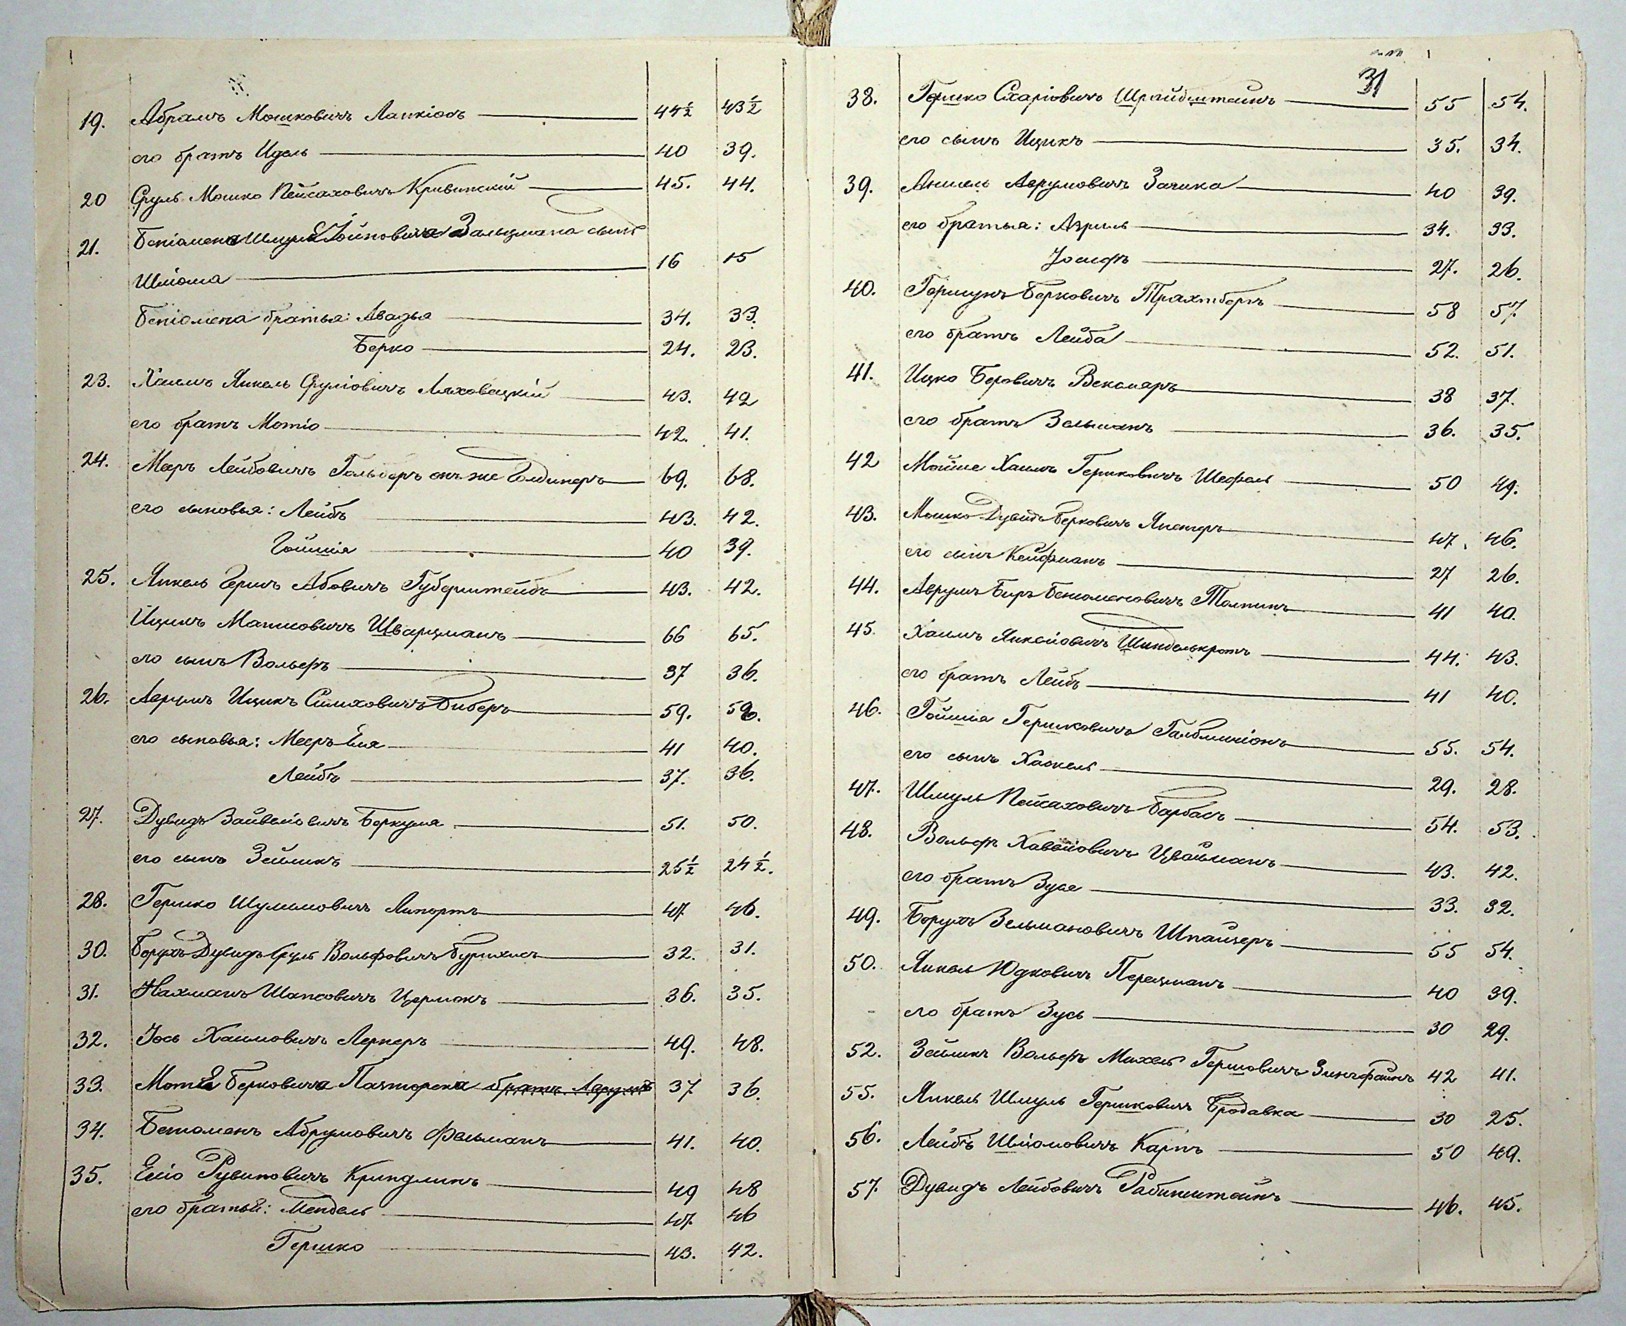 19. Абрамъ Мошковичъ Лапкіосъ 44½ 43½
его братъ Идель 40 39.
20 Сруль Мошко Пейсаховичъ Кривитскій 45. 44.
21. Беніомена Шмуля Іойновича Зальцмана сынъ
Шліома 16 15
Беніомена братья: Авадья 34. 33.
Берко 24. 23.
23. Хаимъ Янкель Сруліовичъ Ляховецкій 43. 42
его братъ Мотіо 42. 41.
24. Меръ Лейбовичъ Гольдеръ онъ же Голдинеръ 69. 68.
его сыновья: Лейбъ 43. 42.
Гойшія 40 39.
25. Янкель Герш Абовичъ Губерштейбъ 43. 42.
Ицикъ Матисовичъ Шварцманъ 66 65.
его сынъ Вольфъ 37 36.
26. Аврумъ Ицикъ Симховичъ Биберъ 59. 58.
его сыновья: Мееръ Еля 41 40.
Лейбъ 37. 36.
27. Дувидъ Зайвелёвичъ Беркуля 51. 50.
его сынъ Зейликъ 25½ 24½.
28. Гершко Шулимовичъ Лапортъ 47 46.
30. Борухъ Дувидъ Сруль Вольфовичъ 32. 31.
31. Нахманъ Шапсовичъ Цермокъ 36. 35.
32. Іось Хаимовичъ Лернеръ 49. 48.
33. Мотя Берковича Пасторека братъ Аврумъ 37 36.
34. Беніоменъ Абрумовичъ Фельманъ 41. 40.
35. Еліо Рувиновичъ Криндлинъ 49 48
его братья: Мендель 47 46
Гершко 43. 42.
31
38. Гершко Схаріовичъ Шрайбштейнъ 55 54.
его сынъ Ицикъ 35. 34.
39. Аншель Аврумовичъ Зачика 40 39.
его братья: Азриль 34. 33.
Іосифъ 27. 26.
40. Гершунъ Берковичъ Трахтберъ 58 57
его братъ Лейба 52. 51.
41. Ицко Беровичъ Векслеръ 38 37.
его братъ Зельманъ 36. 35.
42 Мойше Хаимъ Гершковичъ Шефель 50 49.
43. Мошко Дувидъ Берковичъ 47. 46.
его сынъ Кейфманъ 27 26.
44. Аврумъ Беръ Беніоменовичъ Толпинъ 41 40.
45. Хаимъ Янкелёвичъ Шинделькротъ 44. 43.
его братъ Лейбъ 41 40.
46. Гойшіа Гершковичъ 55. 54.
его сынъ Хаскель 29. 28.
47. Шмуль Пейсаховичъ Барбасъ 54. 53.
48. Вольфъ Хавелёвичъ Цвайманъ 43. 42.
его братъ Зусе 33. 32.
49. Борухъ Зельмановичъ Шпайзеръ 55 54.
50. Янкель Юдковичъ Перецманъ 40 39.
его братъ Зусь 30 29.
52. Зейликъ Вольфъ Михель Гершовичъ Зингфайнъ 42 41.
55. Янкель Шмуль Гершковичъ Бродавка 30 25.
56. Лейбъ Шліомовичъ Карпъ 50 49.
57. Дувидъ Лейбовичъ Рабинштейнъ 46. 45.